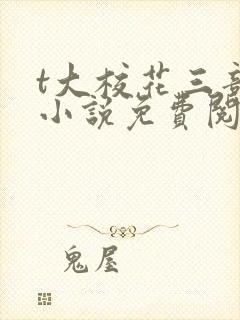 t大校花三部
小说免費閱
鬼屋